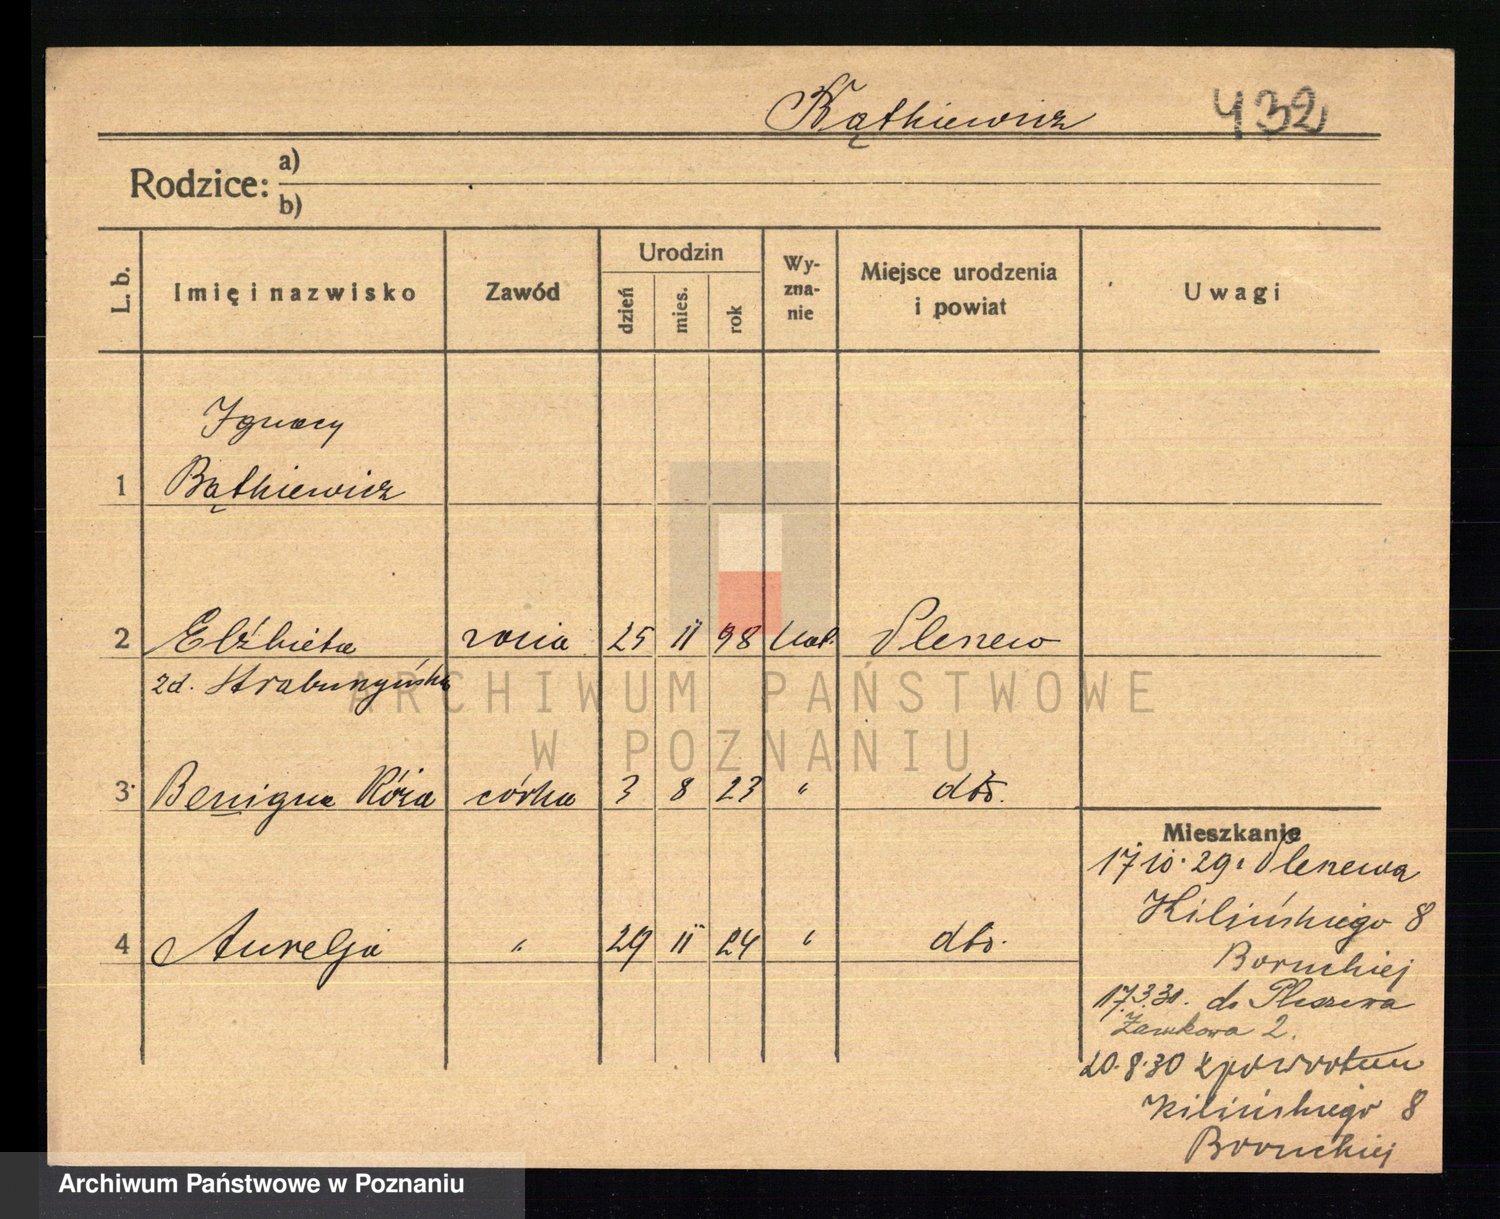 Bątkiewicz 432
Rodzice: a)
b)
L. b.
Imię i nazwisko
Zawód
Urodzin
dzień
mies.
rok
Wy-
zna-
nie
Miejsce urodzenia
i powiat
Uwagi
Ignacy
1 Bątkiewicz
2 Elżbieta żona 25 II 98 kat. Pleszew
zd. Strabużyńska
3 Benigna Róża córka 3 8 23 " dto.
4 Aurelja " 29 II 24 " dto.
Mieszkanie
17 10. 29. Pleszewa
Kilińskiego 8
Boruckiej
17.3.30. do Pleszewa
Zamkowa 2.
20.8.30 z powrotem
Kilińskiego 8
Boruckiej
ARCHIWUM PAŃSTWOWE
W POZNANIU
Archiwum Państwowe w Poznaniu